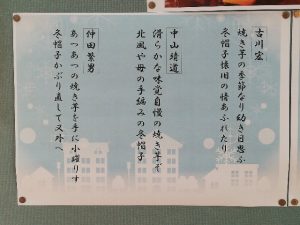 古川宏
焼き芋の季節なり幼き日思ふ
冬帽子懐旧の情あふれたり
中山靖道
滑らかな味覚自慢の焼き芋ぞ
北風や母の手編みの冬帽子
仲田繁男
あつあつの焼き芋を手に小躍りす
冬帽子かぶり直して又外へ